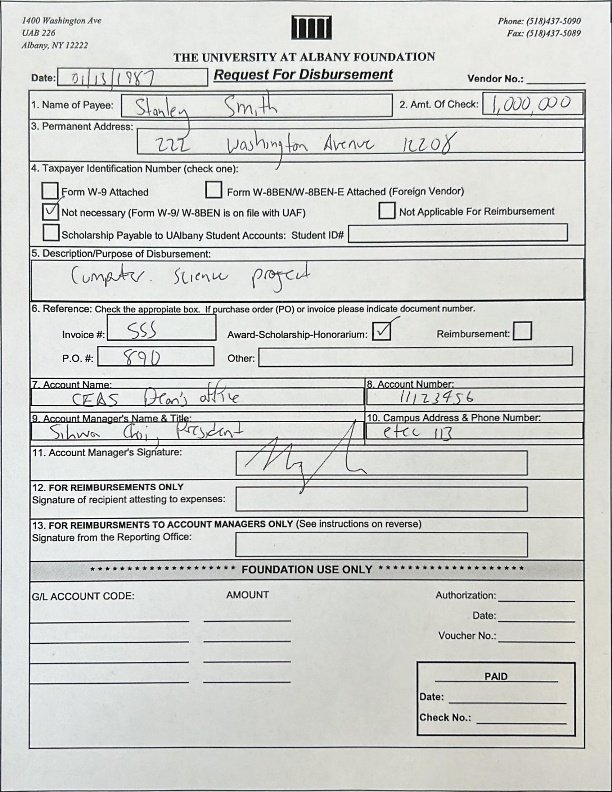 1400 Washington Ave
UAB 226
Albany, NY 12222
Phone: (518)437-5090
Fax: (518)437-5089
THE UNIVERSITY AT ALBANY FOUNDATION
Date: 01/13/1987 Request For Disbursement Vendor No.:
1. Name of Payee: Stanley Smith 2. Amt. Of Check: 1,000,000
3. Permanent Address:
222 Washington Avenue 12208
4. Taxpayer Identification Number (check one):
Form W-9 Attached Form W-8BEN/W-8BEN-E Attached (Foreign Vendor)
Not necessary (Form W-9/ W-8BEN is on file with UAF) Not Applicable For Reimbursement
Scholarship Payable to UAlbany Student Accounts: Student ID#
5. Description/Purpose of Disbursement:
Computer science project
6. Reference: Check the appropiate box. If purchase order (PO) or invoice please indicate document number.
Invoice #: 555 Award-Scholarship-Honorarium: Reimbursement:
P.O. #: 890 Other:
7. Account Name: 8. Account Number:
CEAS Dean's office 11123456
9. Account Manager's Name & Title: 10. Campus Address & Phone Number:
Sihwa Choi, President etec 113
11. Account Manager's Signature:
12. FOR REIMBURSEMENTS ONLY
Signature of recipient attesting to expenses:
13. FOR REIMBURSMENTS TO ACCOUNT MANAGERS ONLY (See instructions on reverse)
Signature from the Reporting Office:
* * * * * * * * * * * * * * * * * * * * FOUNDATION USE ONLY * * * * * * * * * * * * * * * * * * * *
G/L ACCOUNT CODE: AMOUNT Authorization:
Date:
Voucher No.:
PAID
Date:
Check No.: